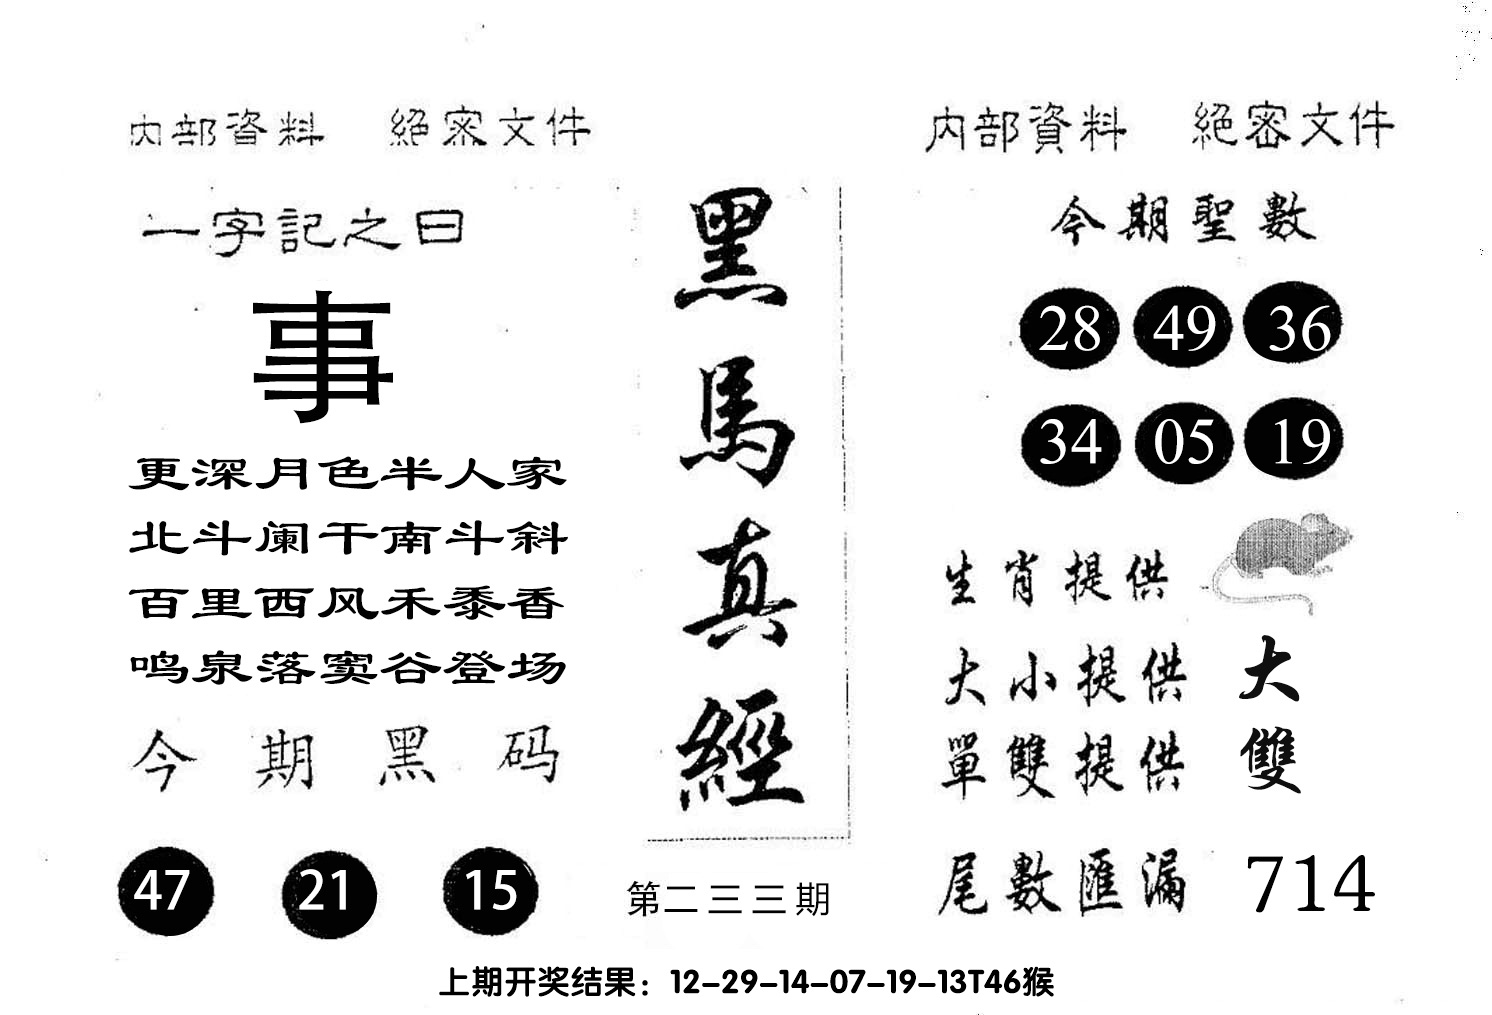 内部資料 絕密文件
一字記之曰
事
更深月色半人家
北斗阑干南斗斜
百里西风禾黍香
鸣泉落窦谷登场
今期黑码
47 21 15
黑馬真經
第二三三期
内部資料 絕密文件
今期聖數
28 49 36
34 05 19
生肖提供
大小提供 大
單雙提供 雙
尾數匯漏 714
上期开奖结果：12-29-14-07-19-13T46猴